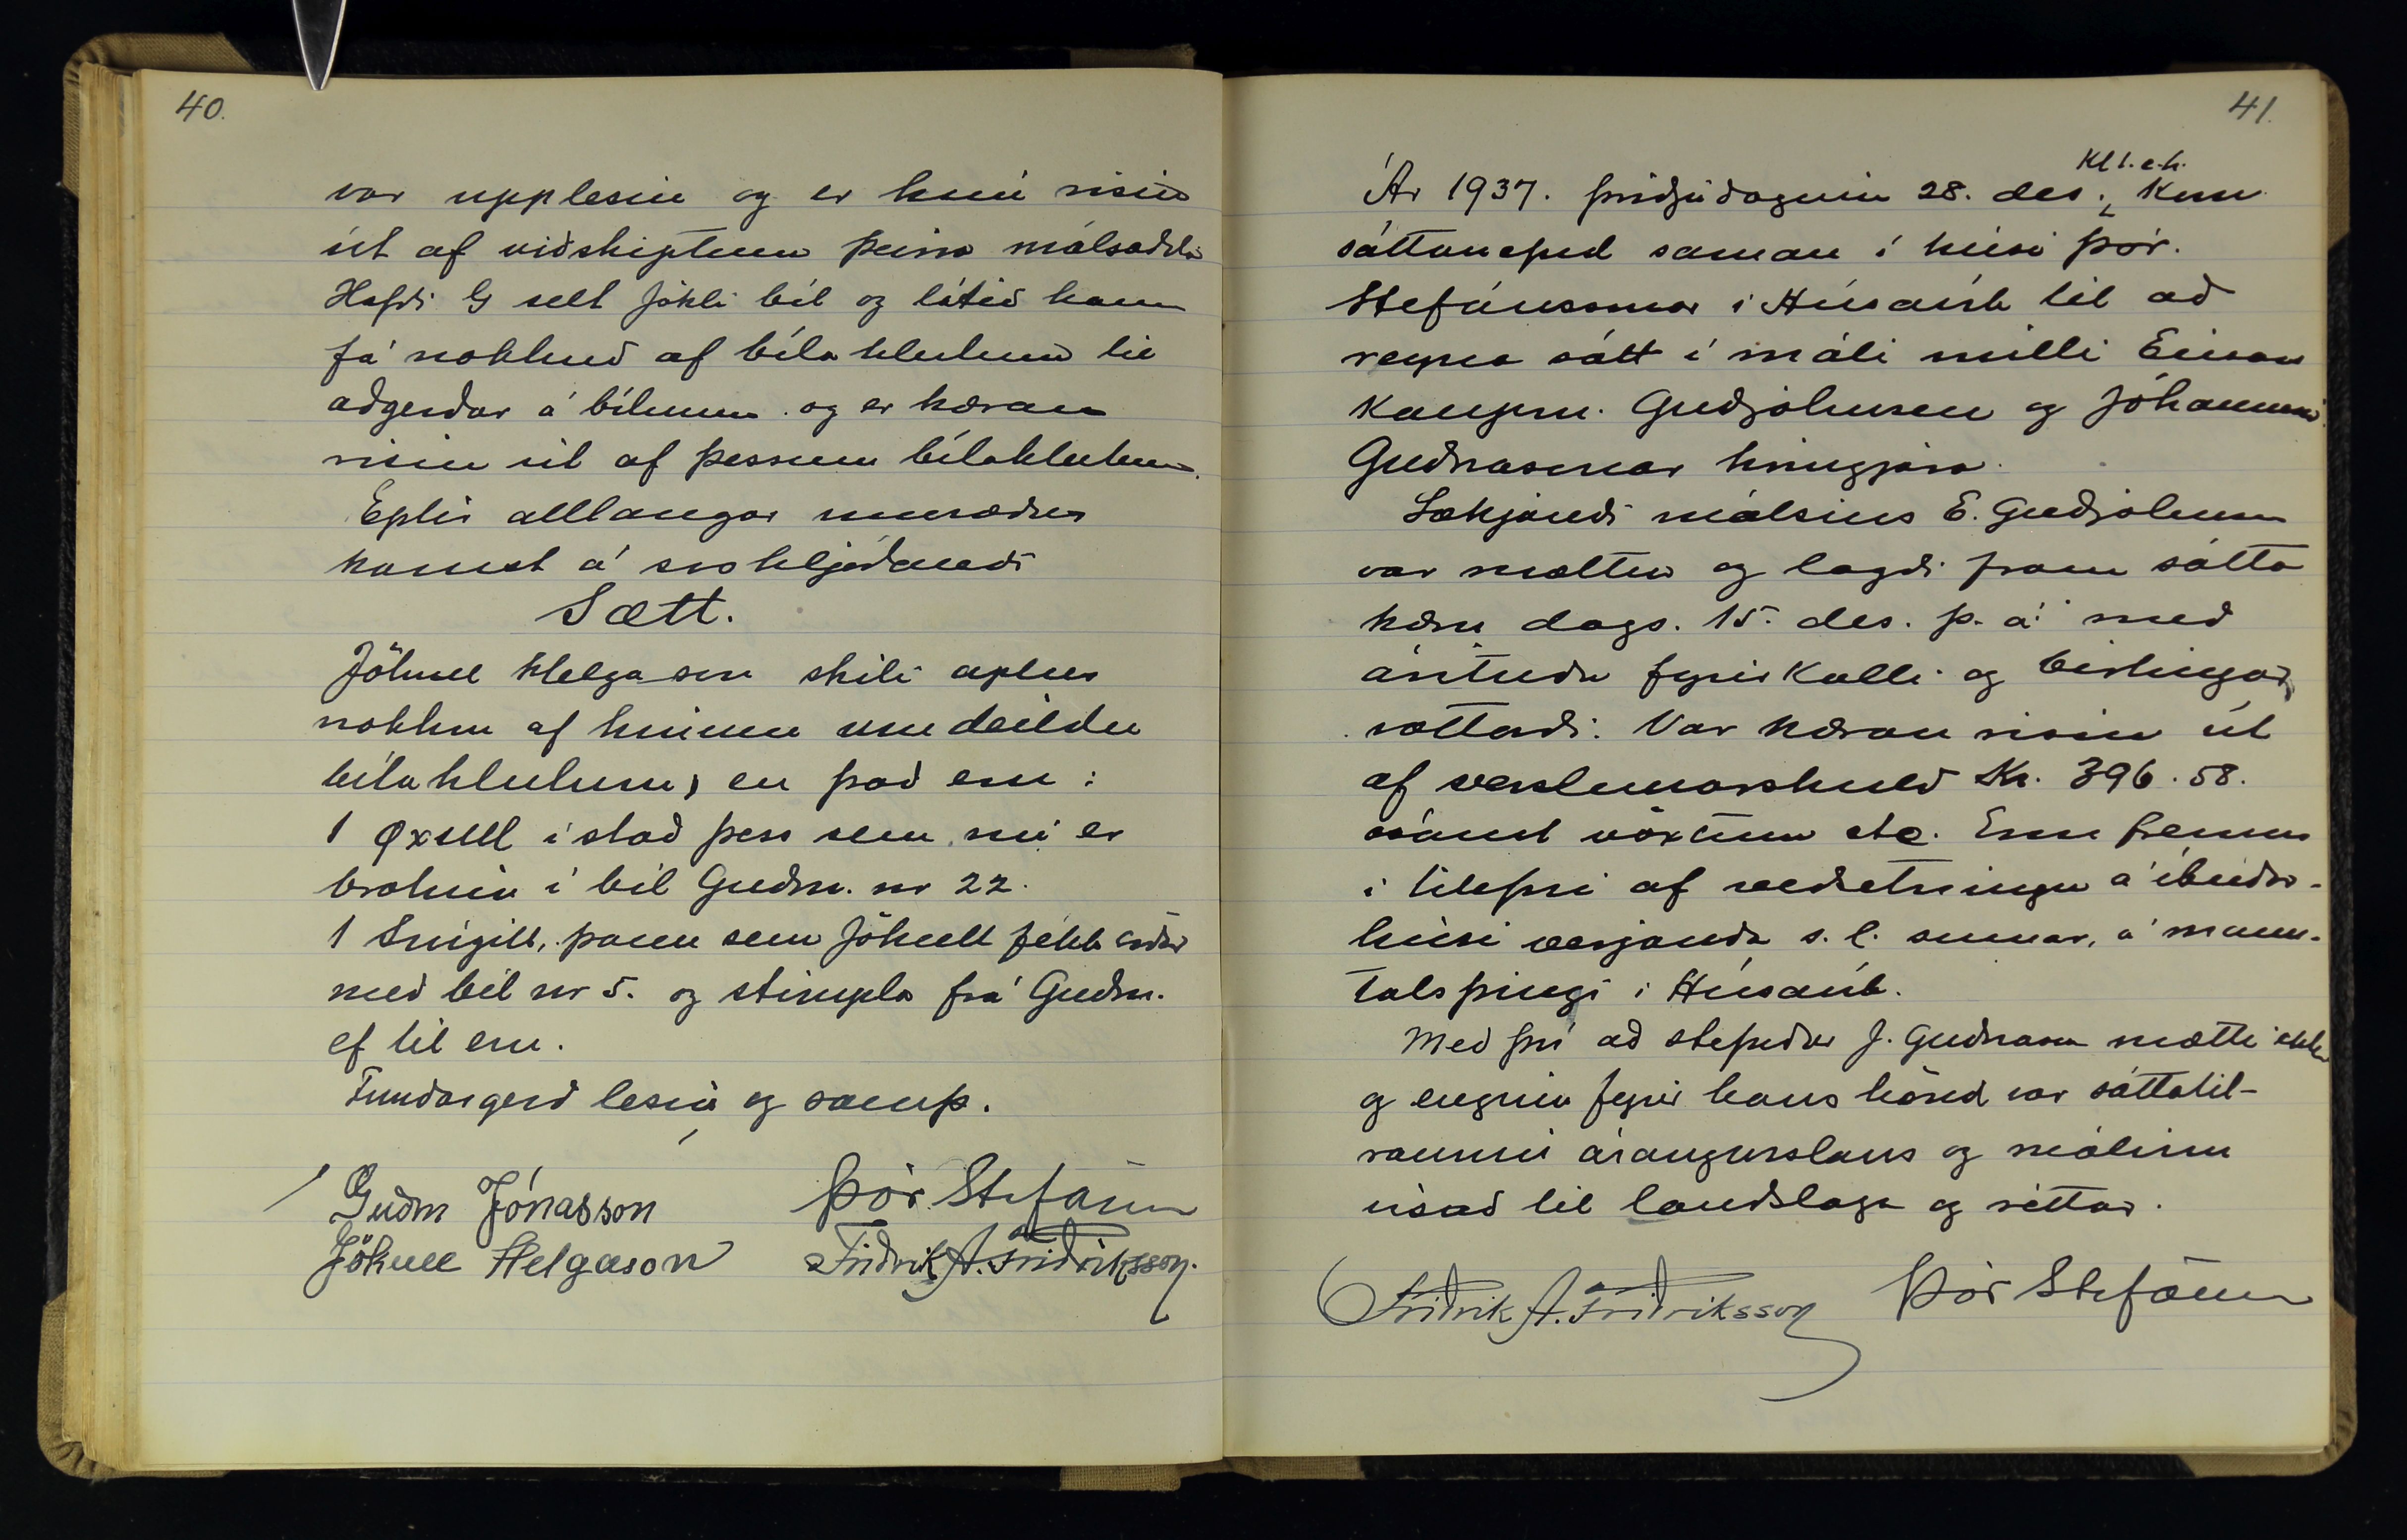 40.
var upplesin og er hún risin
út af viðskiptum þeirra málsaðila
Hafði G selt Jökli bíl og látið hann
fá nokkuð af bílahlutum til
aðgerðar á bílnum og er kæran
risin út af þessum bílahlutum.
Eptir alllangar umræður
komst á svohljóðandi
Sætt.
Jökull Helgason skili aptur
nokkru af hinum umdeildu
bílahlutum, en það eru:
1 Öxull í stað þess sem nú er
brotinn í bíl Guðm. nr 22.
1 Snígill, þann sem Jökull fékk
með bíl nr 5. og stimpla frá Guðm.
ef til eru.
Fundargerð lesin og samþ.
Guðm Jónasson Þór. Stefánss
Jökull Helgason Friðrik A. Friðriksson.
41.
Kl 1. e.h.
Ár 1937. þriðjudaginn 28. des., kom
sáttanefnd saman í húsi Þór.
Stefánssonar í Húsavík til að
reyna sátt í máli milli Einars
Kaupm. Guðjohnsen og Jóhannesar
Guðnasonar
Sækjandi málsins E. Guðjohnsen
var mættur og lagði fram sátta
kæru dags. 15. des. þ. á. með
árituðu fyrirkalli og birtingar
vottorði. Var kæran risin út
af verslunarskuld Kr. 396.58.
ásamt vöxtum etc. Enn fremur
í tilefni af veðsetningu á íbúðar-
húsi verjanda s.l. sumar, á mann-
talsþingi í Húsavík.
Með því að stefndur J. Guðnason mætti ekki
og enginn fyrir hans hönd var sáttatil-
raunin árangurslaus og málinu
vísað til landslaga og réttar.
Friðrik A. Friðriksson Þór Stefánss